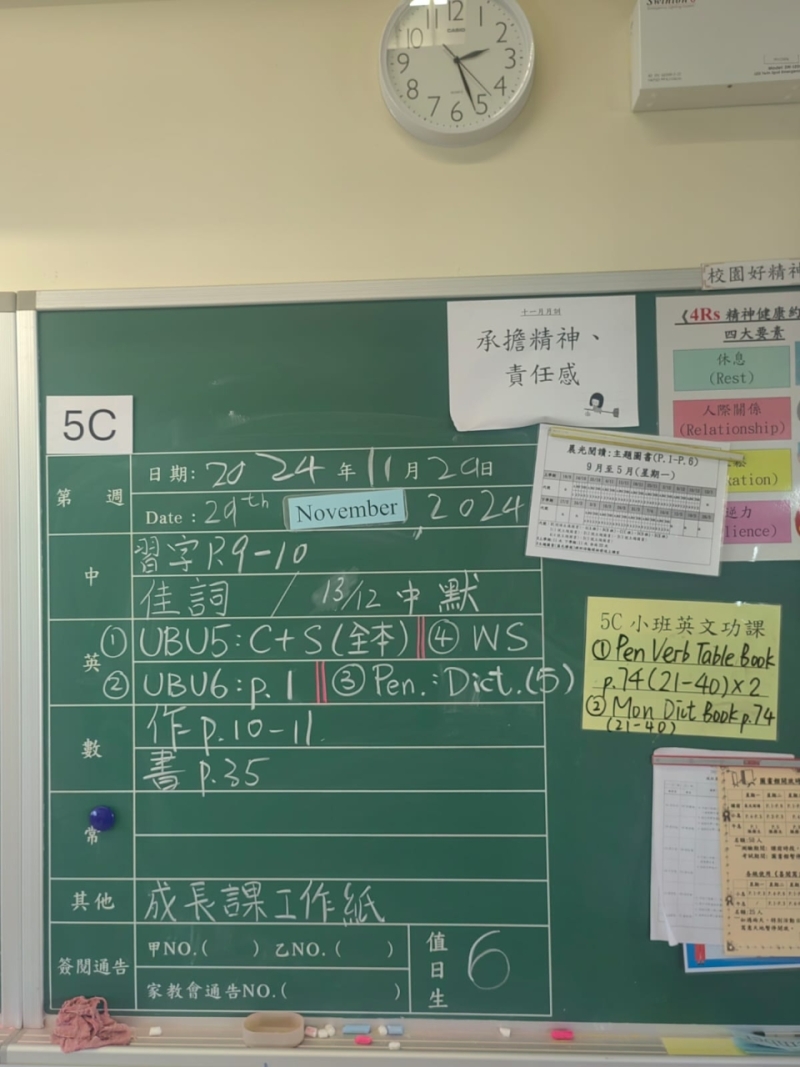 12
1
2
3
4
5
6
7
8
9
10
11
校園好精神
十一月月訓
承擔精神、
責任感
《4Rs 精神健康約
四大要素
休息
(Rest)
人際關係
(Relationship)
鬆
xation)
逆力
lience)
晨光閱讀:主題圖書(P.1-P.6)
9月至5月(星期一)
5C
第 週
日期: 2024 年 11 月 29 日
Date : 29th November, 2024
中
習字 P.9-10
佳詞 / 13/12 中默
英
① UBU5: C+S (全本) ④ WS
② UBU6: p.1 ③ Pen.: Dict.(5)
數
作 p.10-11.
書 p.35
常
其他
成長課工作紙
簽閱通告
甲NO.( ) 乙NO.( )
家教會通告NO.( )
值日生
6
5C 小班英文功課
① Pen Verb Table Book
p.74(21-40)×2
② Mon Dict Book p.74
(21-40)